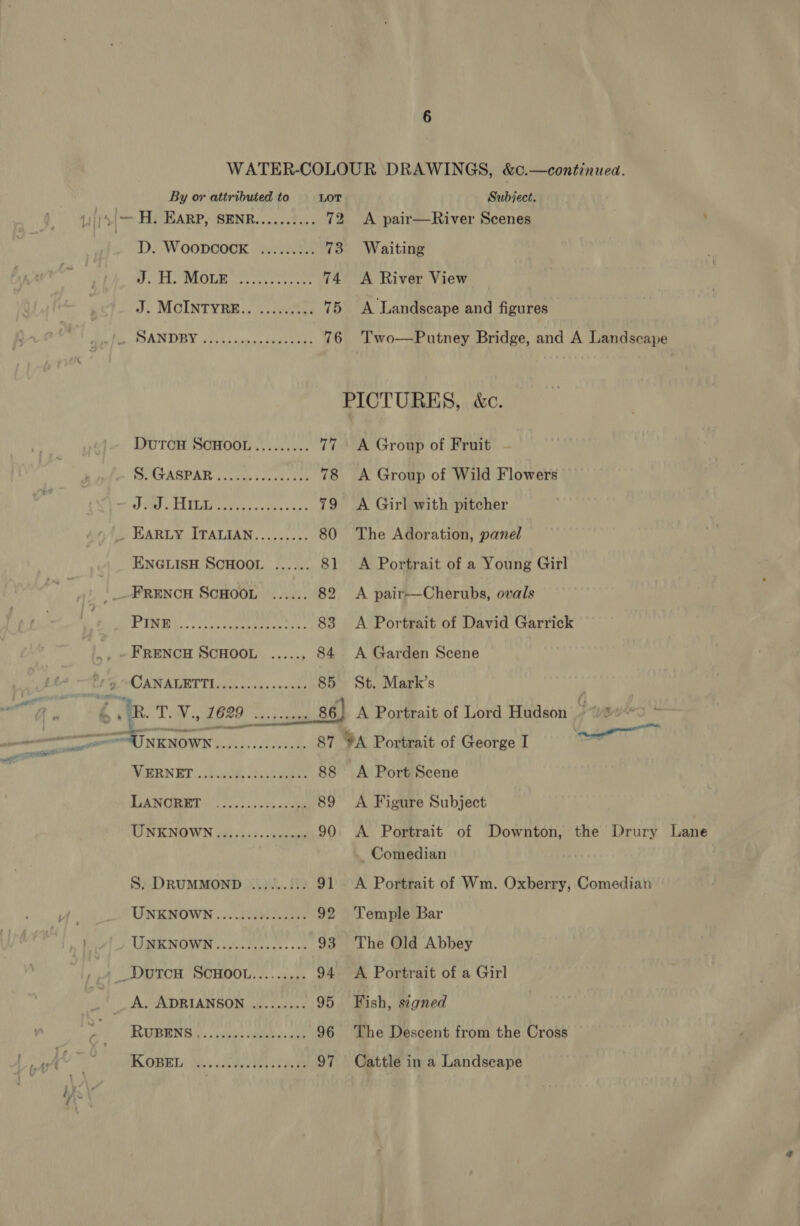 6
WATER-COLOUR DRAWINGS, &c.—continued.
By or attributed to LOT Subject.
H. EARP, SENR.......... 72 A pair—River Scenes
D. WOODCOCK ......... 73 Waiting
J. H. MOLE ............ 74 A River View
J. MCINTYRE.. ......... 75 A Landscape and figures
SANDBY .................. 76 Two—Putney Bridge, and A Landscape
PICTURES, &c.
DUTCH SCHOOL......... 77 A Group of Fruit
S. GASPAR ............... 78 A Group of Wild Flowers
J. J. HILL ............... 79 A Girl with pitcher
EARLY ITALIAN......... 80 The Adoration, panel
ENGLISH SCHOOL ...... 81 A Portrait of a Young Girl
FRENCH SCHOOL ...... 82 A pair—Cherubs, ovals
PINE ..................... 83 A Portrait of David Garrick
FRENCH SCHOOL ......, 84 A Garden Scene
CANALETTI............... 85 St. Mark's
R. T. V., 1629 ......... 86 A Portrait of Lord Hudson
UNKNOWN............... 87 A Portrait of George I
VERNET .................. 88 A Port Scene
LANCRET ............... 89 A Figure Subject
UNKNOWN............... 90 A Portrait of Downton, the Drury Lane
Comedian
S. DRUMMOND ......... 91 A Portrait of Wm. Oxberry, Comedian
UNKNOWN............... 92 Temple Bar
UNKNOWN............... 93 The Old Abbey
DUTCH SCHOOL......... 94 A Portrait of a Girl
A. ADRIANSON ......... 95 Fish, signed
RUBENS .................. 96 The Descent from the Cross
KOBEL .................. 97 Cattle in a Landscape